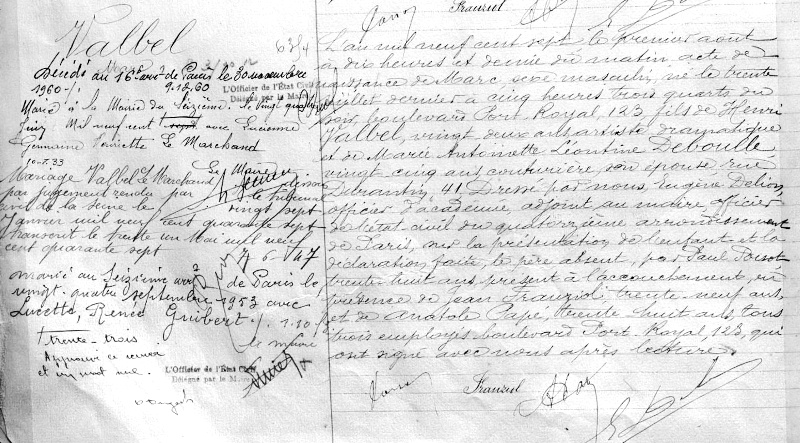 Valbel
Marc
63/4
Décédé au 16e arrt de Paris le 30 novembre
1960 -/. 9.12.60
L'Officier de l'État Civil
Délégué par le M
Marié à la Mairie du Seizième le vingt quatre
Juin Mil neuf cent trente avec Lucienne
Germaine Henriette Le Marchand
10-7-33
Le Maire
Mariage Valbel Le Marchand dissous
par jugement rendu par le tribunal
civil de la Seine le vingt sept
Janvier mil neuf cent quarante sept
Transcrit le trente un Mai mil neuf
cent quarante sept
4 6 47
Marié au Seizième arrt de Paris le
vingt-quatre septembre 1953 avec
Lucette, Renée Guibert ./. 1.10
le maire
trente-trois
et un mot nul.
L'Officier de l'État Civil
Délégué par le M
Franzul
L'an mil neuf cent sept le premier août
à dix heures et demie du matin, acte de
naissance de Marc, sexe masculin, né le trente
juillet dernier à cinq heures trois quarts du
soir, boulevard Port-Royal, 123, fils de Henri
Valbel, vingt deux ans, artiste dramatique
et de Marie Antoinette Léontine Deboulle
vingt cinq ans, couturière, son épouse, rue
41. Dressé par nous, Eugène Delion
officier d'académie, adjoint au maire, officier
de l'état civil du quatorzième arrondissement
de Paris, sur la présentation de l'enfant et la
déclaration faite, le père absent, par Paul
trente huit ans, présent à l'accouchement, en
présence de Jean trente-neuf ans,
et de Anatole Pape, trente huit ans, tous
trois employés boulevard Port-Royal, 123, qui
ont signé avec nous après lecture.
Franzul